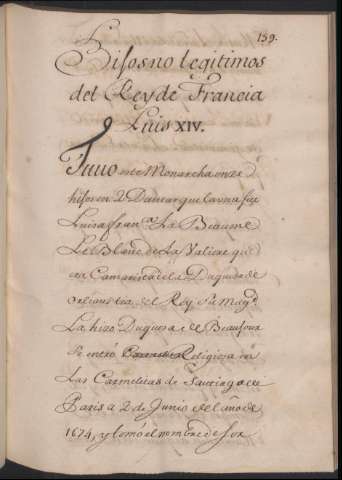 159.
Hijos no legitimos
del Rey de Francia
Luis XIV.
Tuuo este Monarcha onze
hijos en 2 Damas que la vna fue
Luisa fran.ca La Beaume
Le Blanc de La Valiere que
era Camarista de la Duquesa de
orleans tia del Rey su Mag.d
La hizo Duquesa de Beaufour
Se entró Religiosa en
Las Carmelitas de Santiago de
Paris a 2 de Junio del año de
1674, y tomó el nombre de Sor